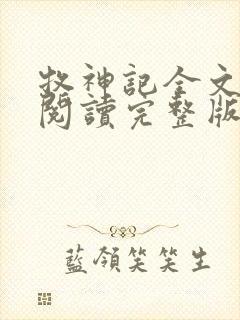 牧神記全文
閱讀完整版
藍領笑笑生